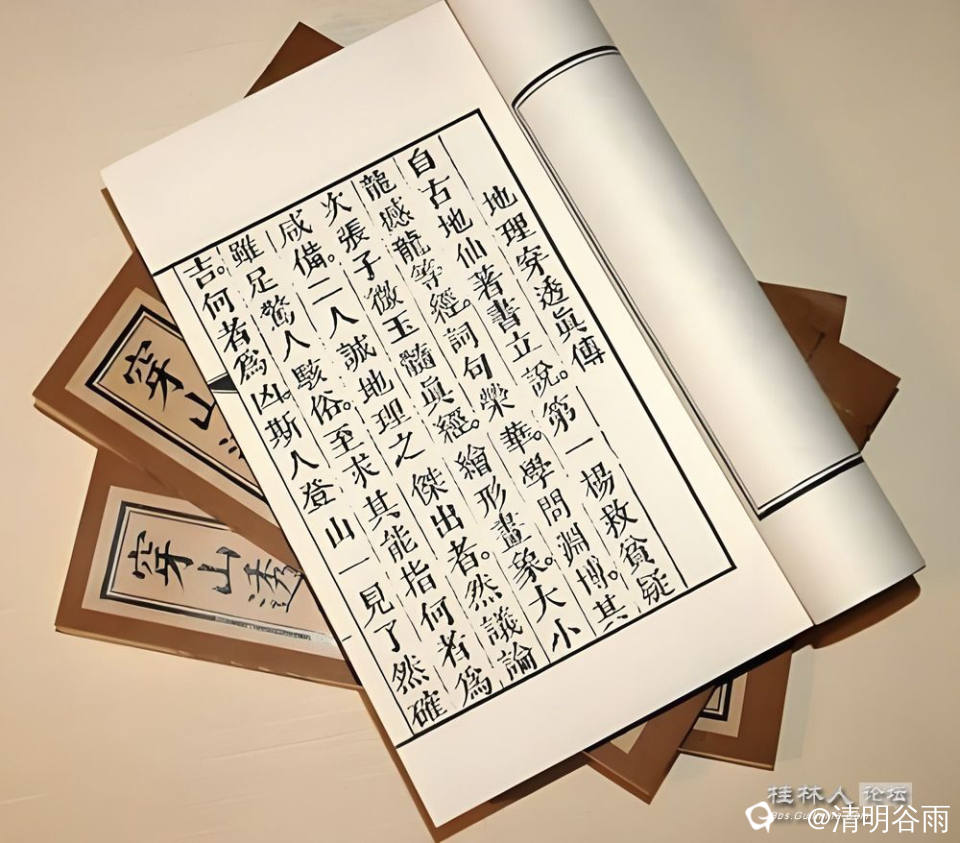 地理穿透眞傳
自古地仙著書立說。第一楊救貧疑
龍撼龍等經。詞句榮華。學問淵博。其
次張子微玉髓眞經。繪形畫象。大小
咸備。二人誠地理之傑出者。然議論
雖足驚人駭俗。至求其能指何者爲
吉。何者爲凶。斯人登山一見了然確
穿山
穿山透
桂林人论坛
@清明谷雨